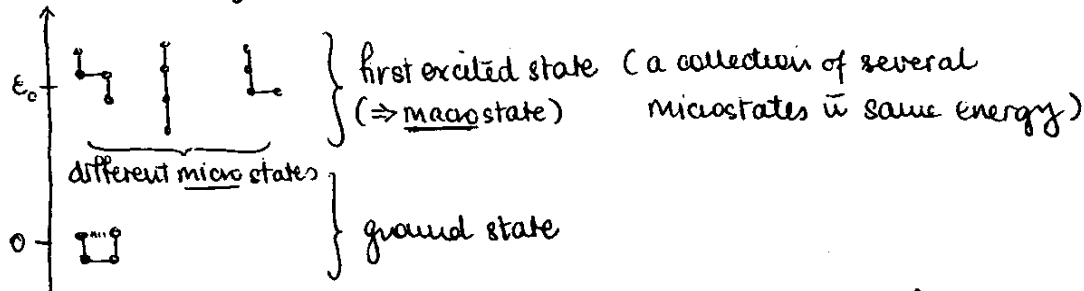 ε₀ first excited state (a collection of several
(⇒ macrostate) microstates w̄ same energy)
different micro states
0 ground state